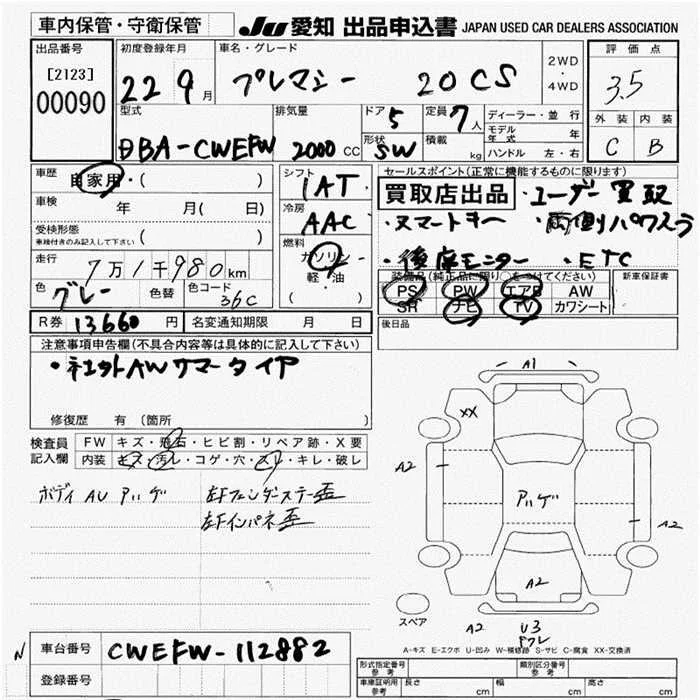 車内保管・守衛保管
JU 愛知 出品申込書 JAPAN USED CAR DEALERS ASSOCIATION
出品番号
[2123]
00090
初度登録年月
22 9月
車名・グレード
プレマシー 20CS
2WD
・
4WD
評価点
3.5
外装 内装
C B
型式
DBA-CWEFW
排気量
2000 CC
ドア
5
定員
7人
形状
SW
積載
kg
ディーラー・並行
モデル年式 年
ハンドル 左・右
車歴
自家用・( )
車検
年 月( 日)
受検形態
車検付きのみ記入して下さい ( )
走行
7万1千980km
色
グレー
色替
色コード
36C
シフト
IAT
冷房
AAC
燃料
ガソリン
・
軽油
( )
セールスポイント(正常に機能するものに限ります)
買取店出品 ・ユーザー買取
・スマートキー ・両側パワスラ
・後席モニター ・ETC
装備品(純正品に限り○をつけてください)
PS PW エアB AW
SR ナビ TV カワシート
新車保証書
後日品
R券 13660円 名変通知期限 月 日
注意事項申告欄(不具合内容等は具体的に記入して下さい)
・社外AWサマータイヤ
修復歴 有 (箇所 )
検査員
記入欄
FW キズ・飛石・ヒビ割・リペア跡・X要
内装 キズ・汚レ・コゲ・穴・スレ・キレ・破レ
ボディAUアハゲ 左Fフェンダーステー歪
左Fインパネ歪
A1
XX
A2
アハゲ
A2
A2
A2 U3
スペア
A-キズ E-エクボ U-凹み W-補修跡 S-サビ C-腐食 XX-交換済
N
車台番号 CWEFW-112882
登録番号
形式指定番号
参考
類別区分番号
参考
車庫証明用
参考
長さ cm 幅 cm 高さ cm